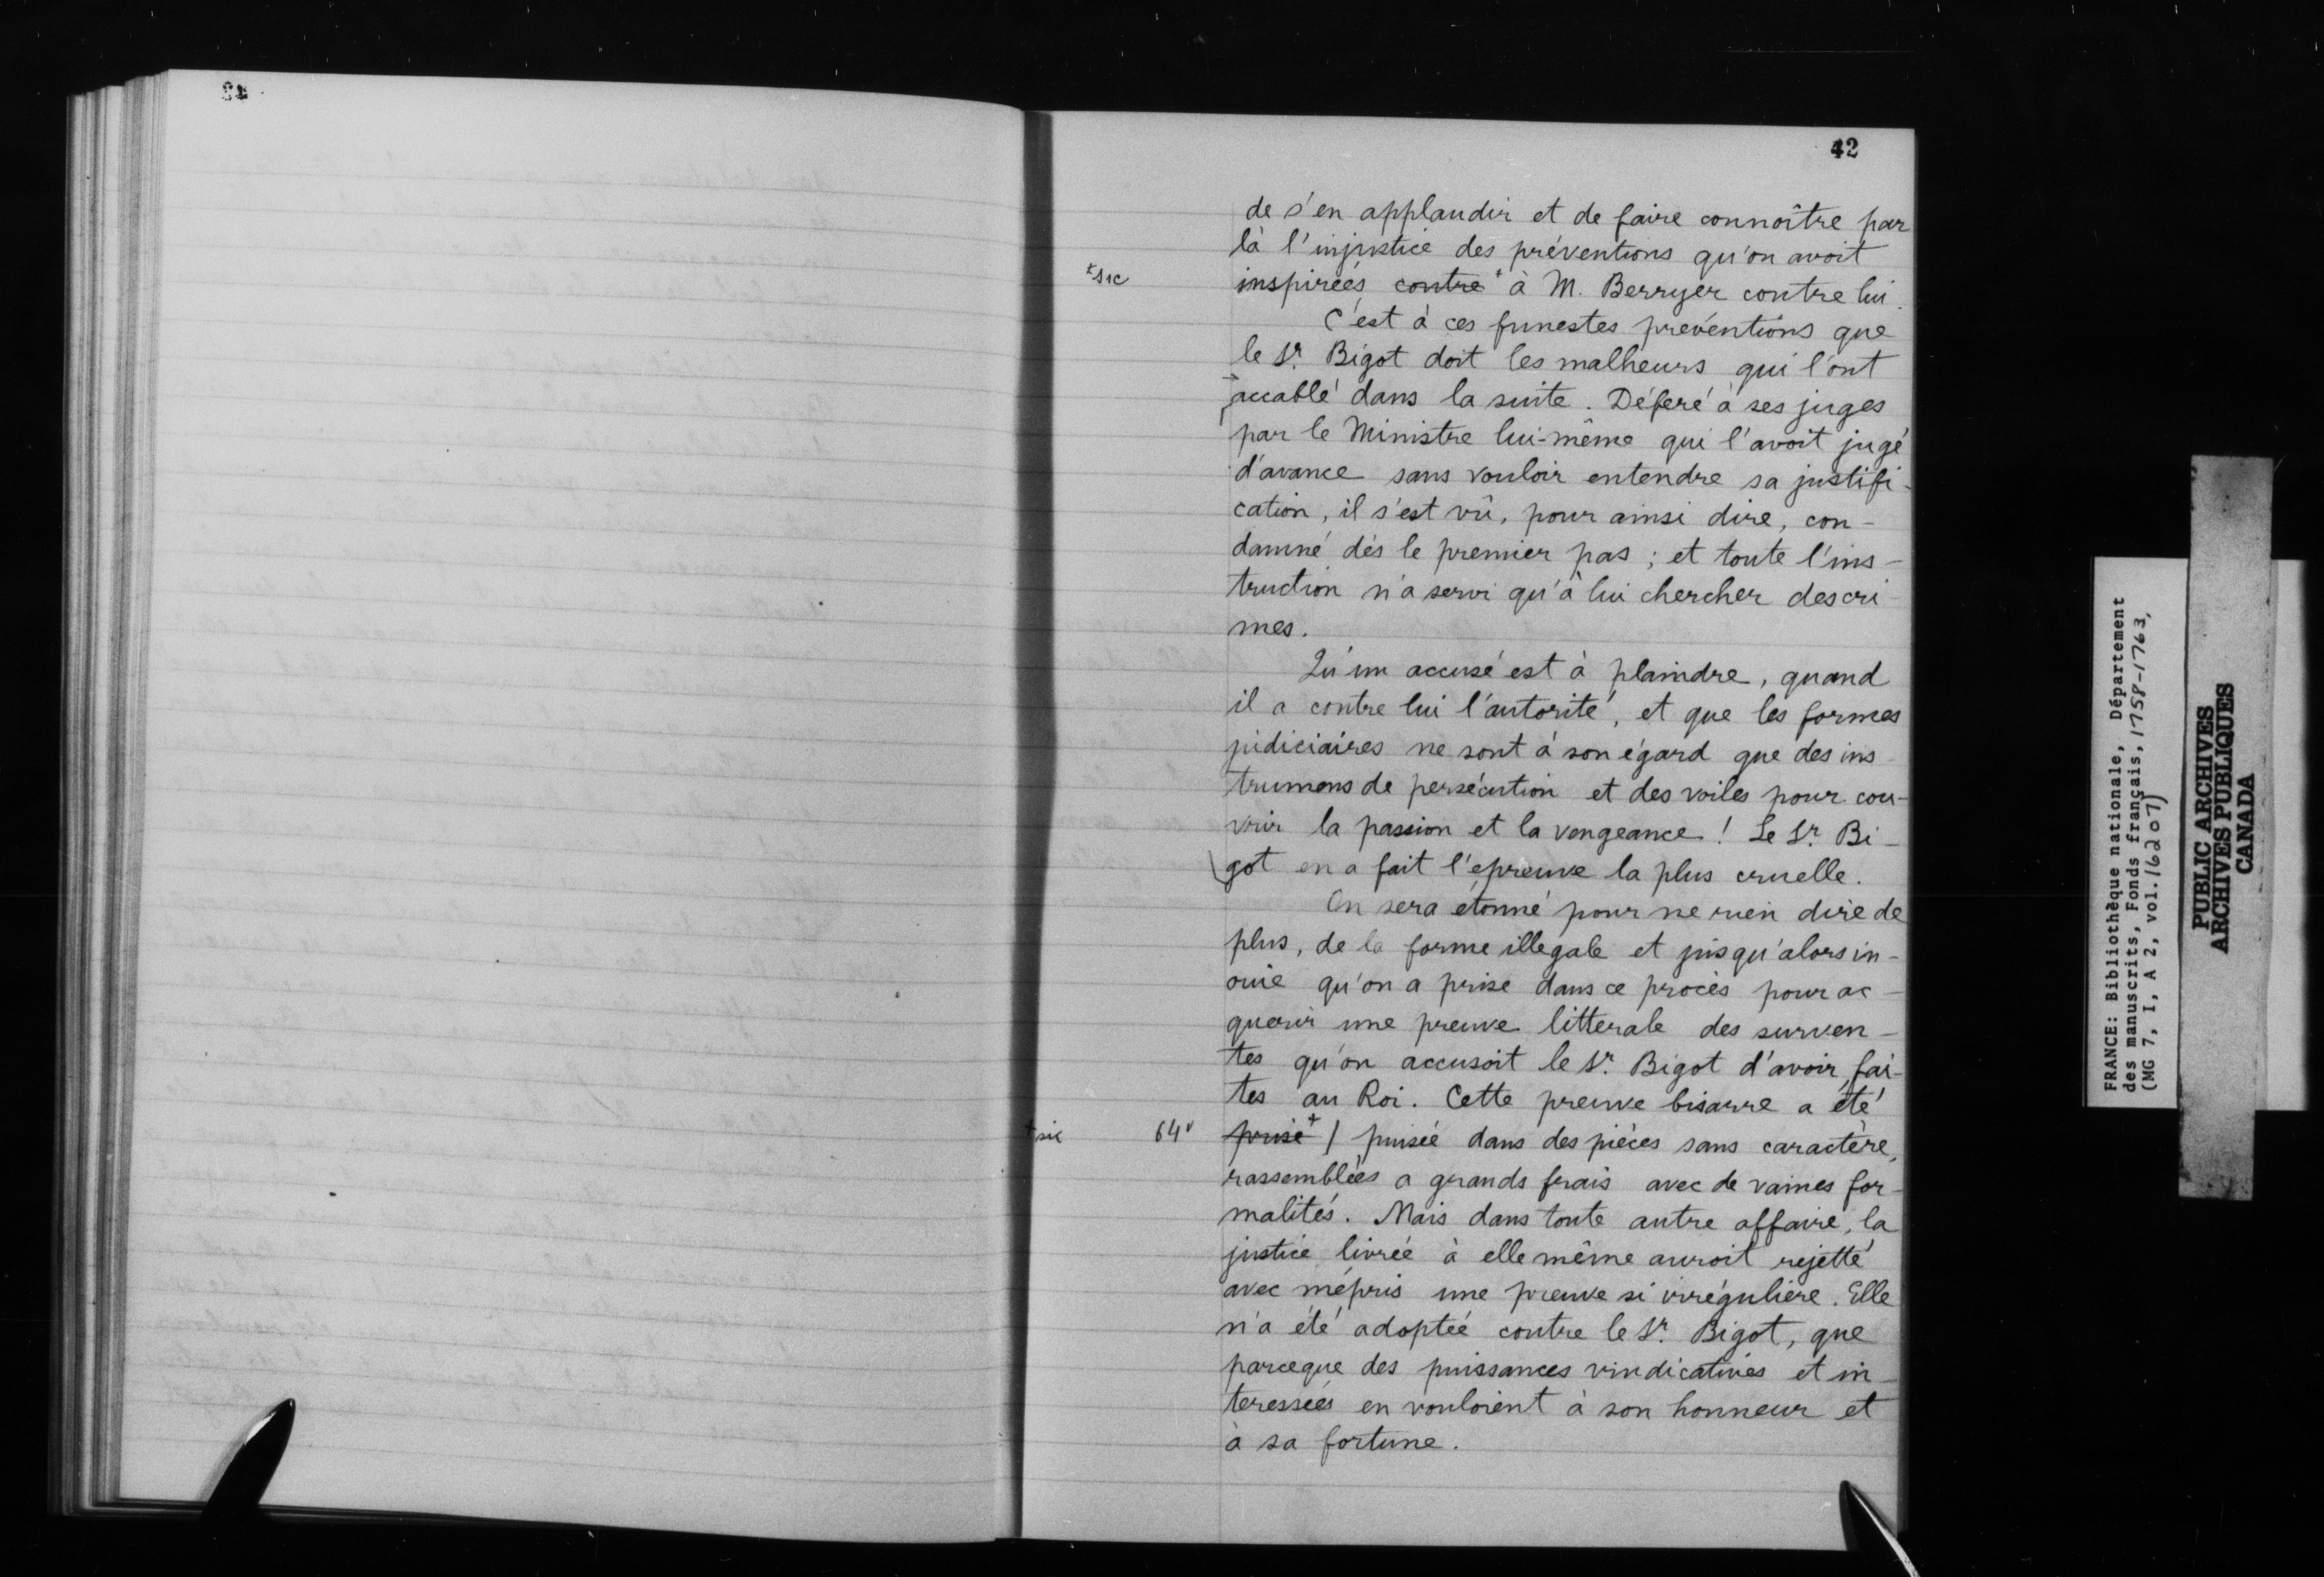 42
de s'en applaudir et de faire connoître par
là l'injustice des préventions qu'on avoit
+sic
inspirées contre + à M. Berryer contre lui.
C'est à ces funestes préventions que
le Sr. Bigot doit les malheurs qui l'ont
accablé dans la suite. Déferé à ses juges
par le Ministre lui-même qui l'avoit jugé
d'avance sans vouloir entendre sa justifi-
cation, il s'est vû, pour ainsi dire, con-
damné dès le premier pas ; et toute l'ins-
truction n'a servi qu'à lui chercher des cri-
mes.
Qu'un accusé est à plaindre, quand
il a contre lui l'autorité, et que les formes
judiciaires ne sont à son égard que des ins-
trumens de persécution et des voiles pour cou-
vrir la passion et la vengeance ! Le Sr. Bi-
got en a fait l'épreuve la plus cruelle.
On sera étonné pour ne rien dire de
plus, de la forme illegale et jusqu'alors in-
ouie qu'on a prise dans ce procès pour ac-
querir une preuve litterale des surven-
tes qu'on accusoit le Sr. Bigot d'avoir fai-
tes au Roi. Cette preuve bisarre a été
+sic 64v prise + / puisée dans des pièces sans caractère,
rassemblées a grands frais avec de vaines for-
malités. Mais dans toute autre affaire, la
justice livrée à elle même auroit rejetté
avec mépris une preuve si irrégulière. Elle
n'a été adoptée contre le Sr. Bigot, que
parceque des puissances vindicatives et in-
teressées en vouloient à son honneur et
à sa fortune.
FRANCE: Bibliothèque nationale, Département
des manuscrits, Fonds français, 1758-1763,
(MG 7, I, A 2, vol. 16207)
PUBLIC ARCHIVES
ARCHIVES PUBLIQUES
CANADA